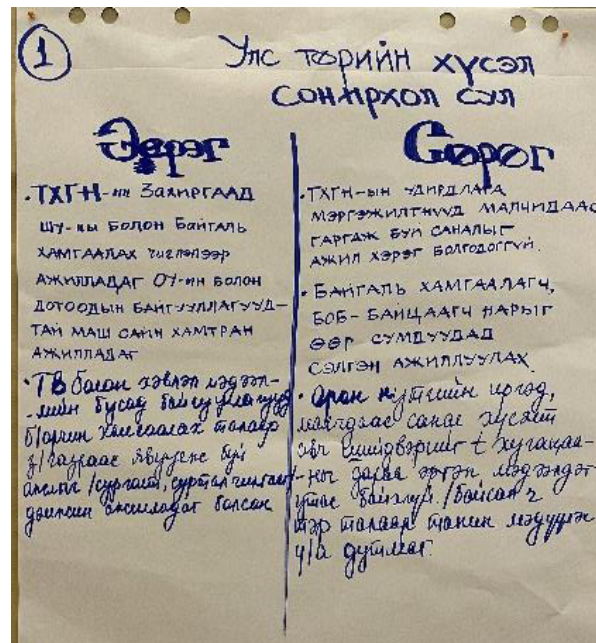 1
Улс төрийн хүсэл
сонирхол сул
Эерэг
• ТХГН-ын Захиргаад
ШУ-ны болон Байгаль
хамгаалах чиглэлээр
ажилладаг ОУ-ын болон
дотоодын байгууллагууд-
тай маш сайн хамтран
ажилладаг
• ТВ болон хэвлэл мэдээл-
-лийн бусад байгууллагууд
б/орчин хамгаалах талаар
з/газраас явуулж буй
ажлыг /сургалт, сурталчилгаа/
дэмжин ажилладаг болсон
Сөрөг
• ТХГН-ын удирдлага
мэргэжилтнүүд малчидаас
гаргаж буй саналыг
ажил хэрэг болгодоггүй.
• Байгаль хамгаалагч,
БОБ- байцаагч нарыг
өөр сумдуудад
сэлгэн ажиллуулах
• Орон нутгийн иргэд,
малчдаас санал хүсэлт
авч шийдвэрийг t хугацаа-
-ны дараа эргэн мэдээлдэг
утас байхгүй. /байсан ч
тэр талаар танин мэдүүлэх
ү/а дутмаг.